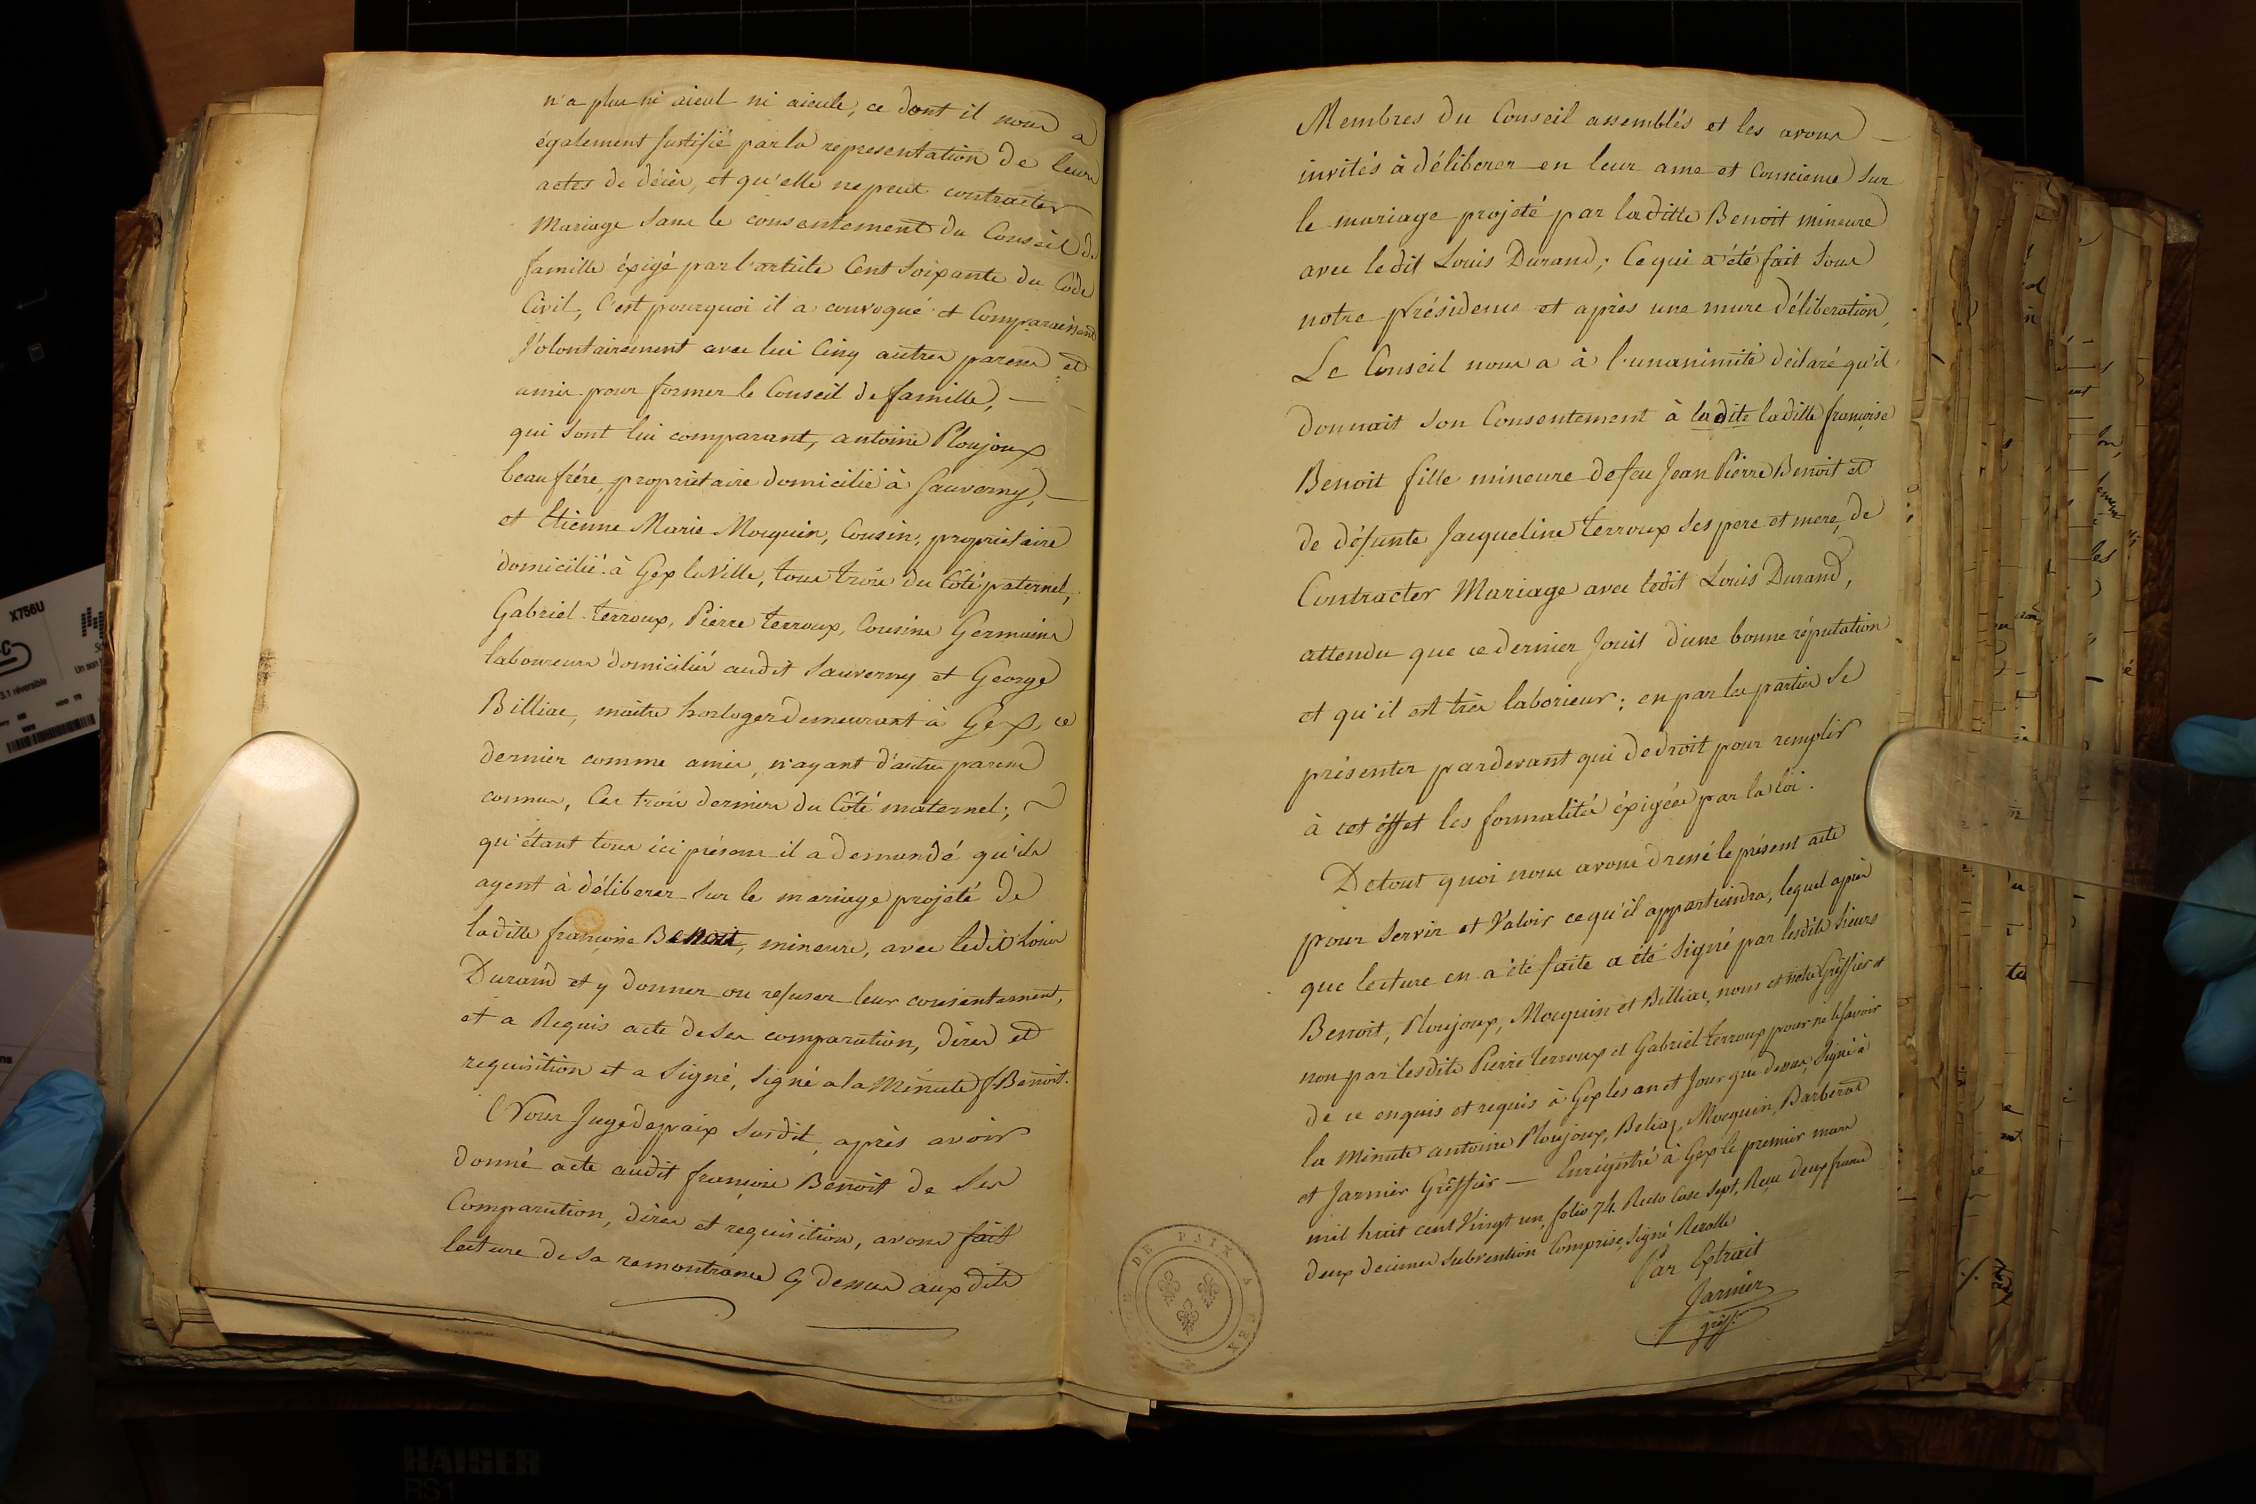 n'a plus ni aieul ni aieule, ce dont il nous a
également justifié par la representation de leurs
actes de décès, et qu'elle ne peut contracter
Mariage sans le consentement du Conseil de
famille éxigé par l'article Cent Soixante du Côde
Civil, C'est pourquoi il a convoqué et Comparaissent
Volontairement avec lui Cinq autres parens et
amis pour former le Conseil de famille, —
qui sont lui comparant, antoine Ploujoux
beaufrére, propriétaire domicilié à Sauverny, —
et Etienne Marie Mocquin, Cousin, propriétaire
domicilié à Gex la Ville, tous trois du Côté paternel,
Gabriel terroux, Pierre terroux, Cousins Germains
laboureurs domiciliés audit Sauverny et George
Billiac, maitre horloger demeurant à Gex, ce
dernier comme amis, n'ayant d'autres parens
connus, Ces trois derniers du Côté maternel;
qu'étant tous ici présens il a demandé qu'ils
ayent à déliberer sur le mariage projeté de
laditte françoise Benoit, mineure, avec ledit Louis
Durand et y donner ou refuser leur consentement,
et a Requis acte de ses comparution, dires et
requisition et a Signé, Signé a la Minute f Benoit.
Nous Juge de paix Susdit, après avoir
donné acte audit françois Benoit de Ses
Comparution, dires et requisition, avons fait
lecture de sa remontrance Cy dessus auxdits
Membres du Conseil assemblés et les avons —
invités à déliberer en leur ame et Conscience Sur
le mariage projeté par laditte Benoit mineure
avec ledit Louis Durand; Ce qui a été fait Sous
notre Présidence et après une mure déliberation,
Le Conseil nous a à l'unanimité déclaré qu'il
donnait son Consentement à ladite laditte françoise
Benoit fille mineure de feu Jean Pierre Benoit et
de défunte Jacqueline terroux Ses pere et mere, de
Contracter Mariage avec ledit Louis Durand,
attendu que ce dernier Jouit d'une bonne réputation
et qu'il est très laborieux; en par les parties Se
présenter pardevant qui de droit pour remplir
à cet éffet les formalités éxigées par la loi.
De tout quoi nous avons dressé le présent acte
pour Servir et Valoir ce qu'il appartiendra, lequel après
que lecture en a été faite a été Signé par lesdits Sieurs
Benoit, Ploujoux, Mocquin et Billiac, nous et notre Gréffier et
non par lesdits Pierre terroux et Gabriel terroux pour ne le Savoir
de ce enquis et requis à Gex les an et Jour que dessus, Signé à
la Minute antoine Ploujoux, Mocquin, Barberat
et Jarnier Gréffier — Enrégistré à Gex le premier mars
mil huit cent Vingt un, folio 74 Recto Case Sept, Reçu deux francs
deux decimes Subvention Comprise, Signé
Par Extrait
Jarnier
gréff.
DE PAIX A GEX
X756U
3.1 réversible
KAISER
RS1